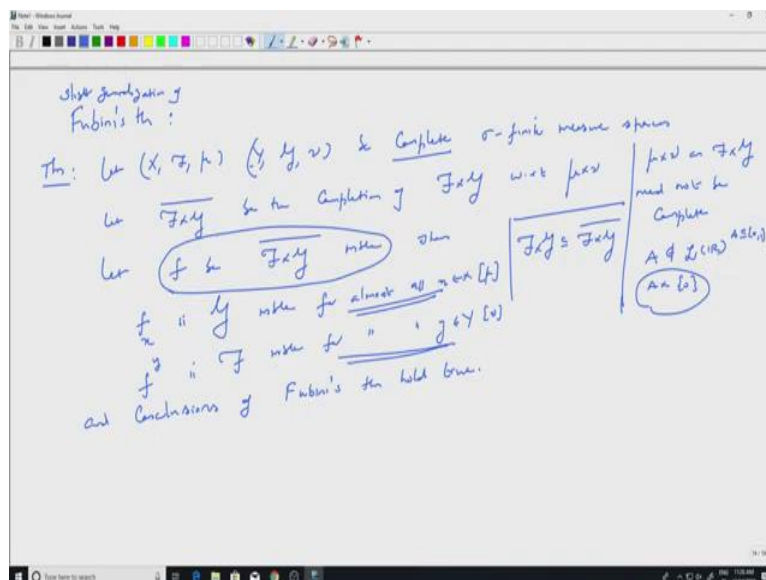 Note1 - Windows Journal
File Edit View Insert Actions Tools Help
Slight generalization of
Fubini's th :
Th: Let (X, F, μ) (Y, G, ν) be Complete σ-finite measure spaces
Let \overline{F×G} be the Completion of F×G w.r.t μ×ν
Let f be \overline{F×G} mble then
f_x is G mble for almost all x∈X [μ]
f^y is F mble for " " y∈Y [ν]
and Conclusions of Fubini's thm hold true.
F×G ⊆ \overline{F×G}
μ×ν on F×G
need not be
Complete
A ∉ L(ℝ) A⊆[0,1]
A× {0}
Type here to search
ENG 11:26 AM